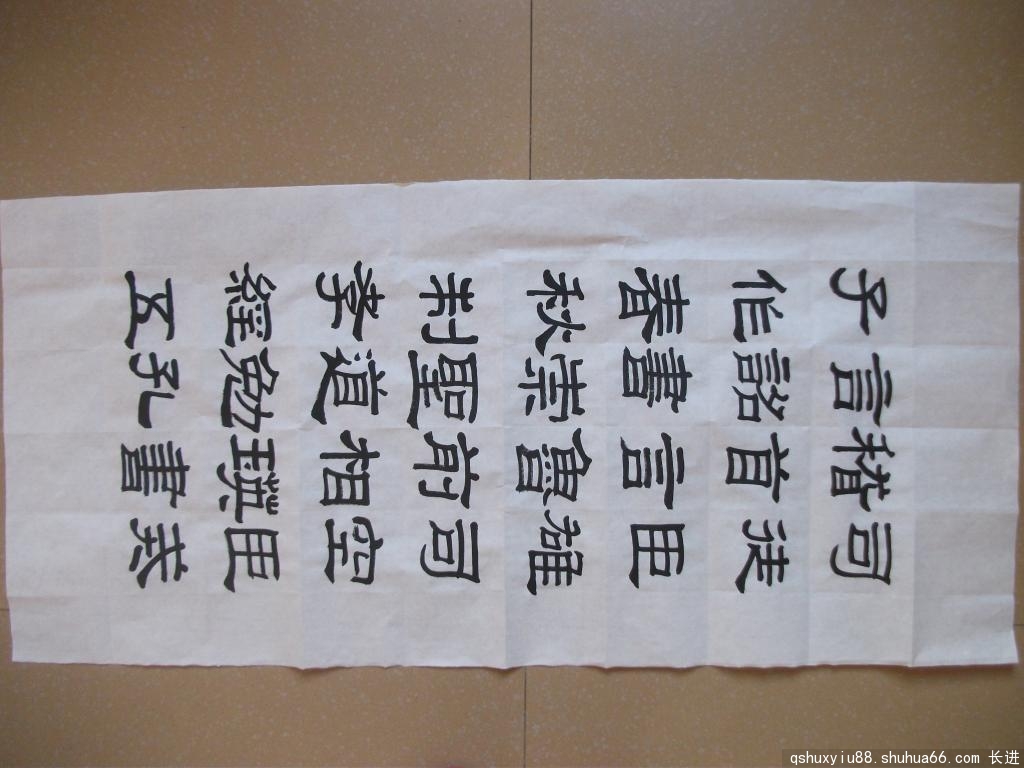 司徒臣雄司空臣戒
稽首言魯前相瑛書
言詔書崇聖道勉孔
子作春秋制孝經五
qshuxyiu88.shuhua66.com 长进